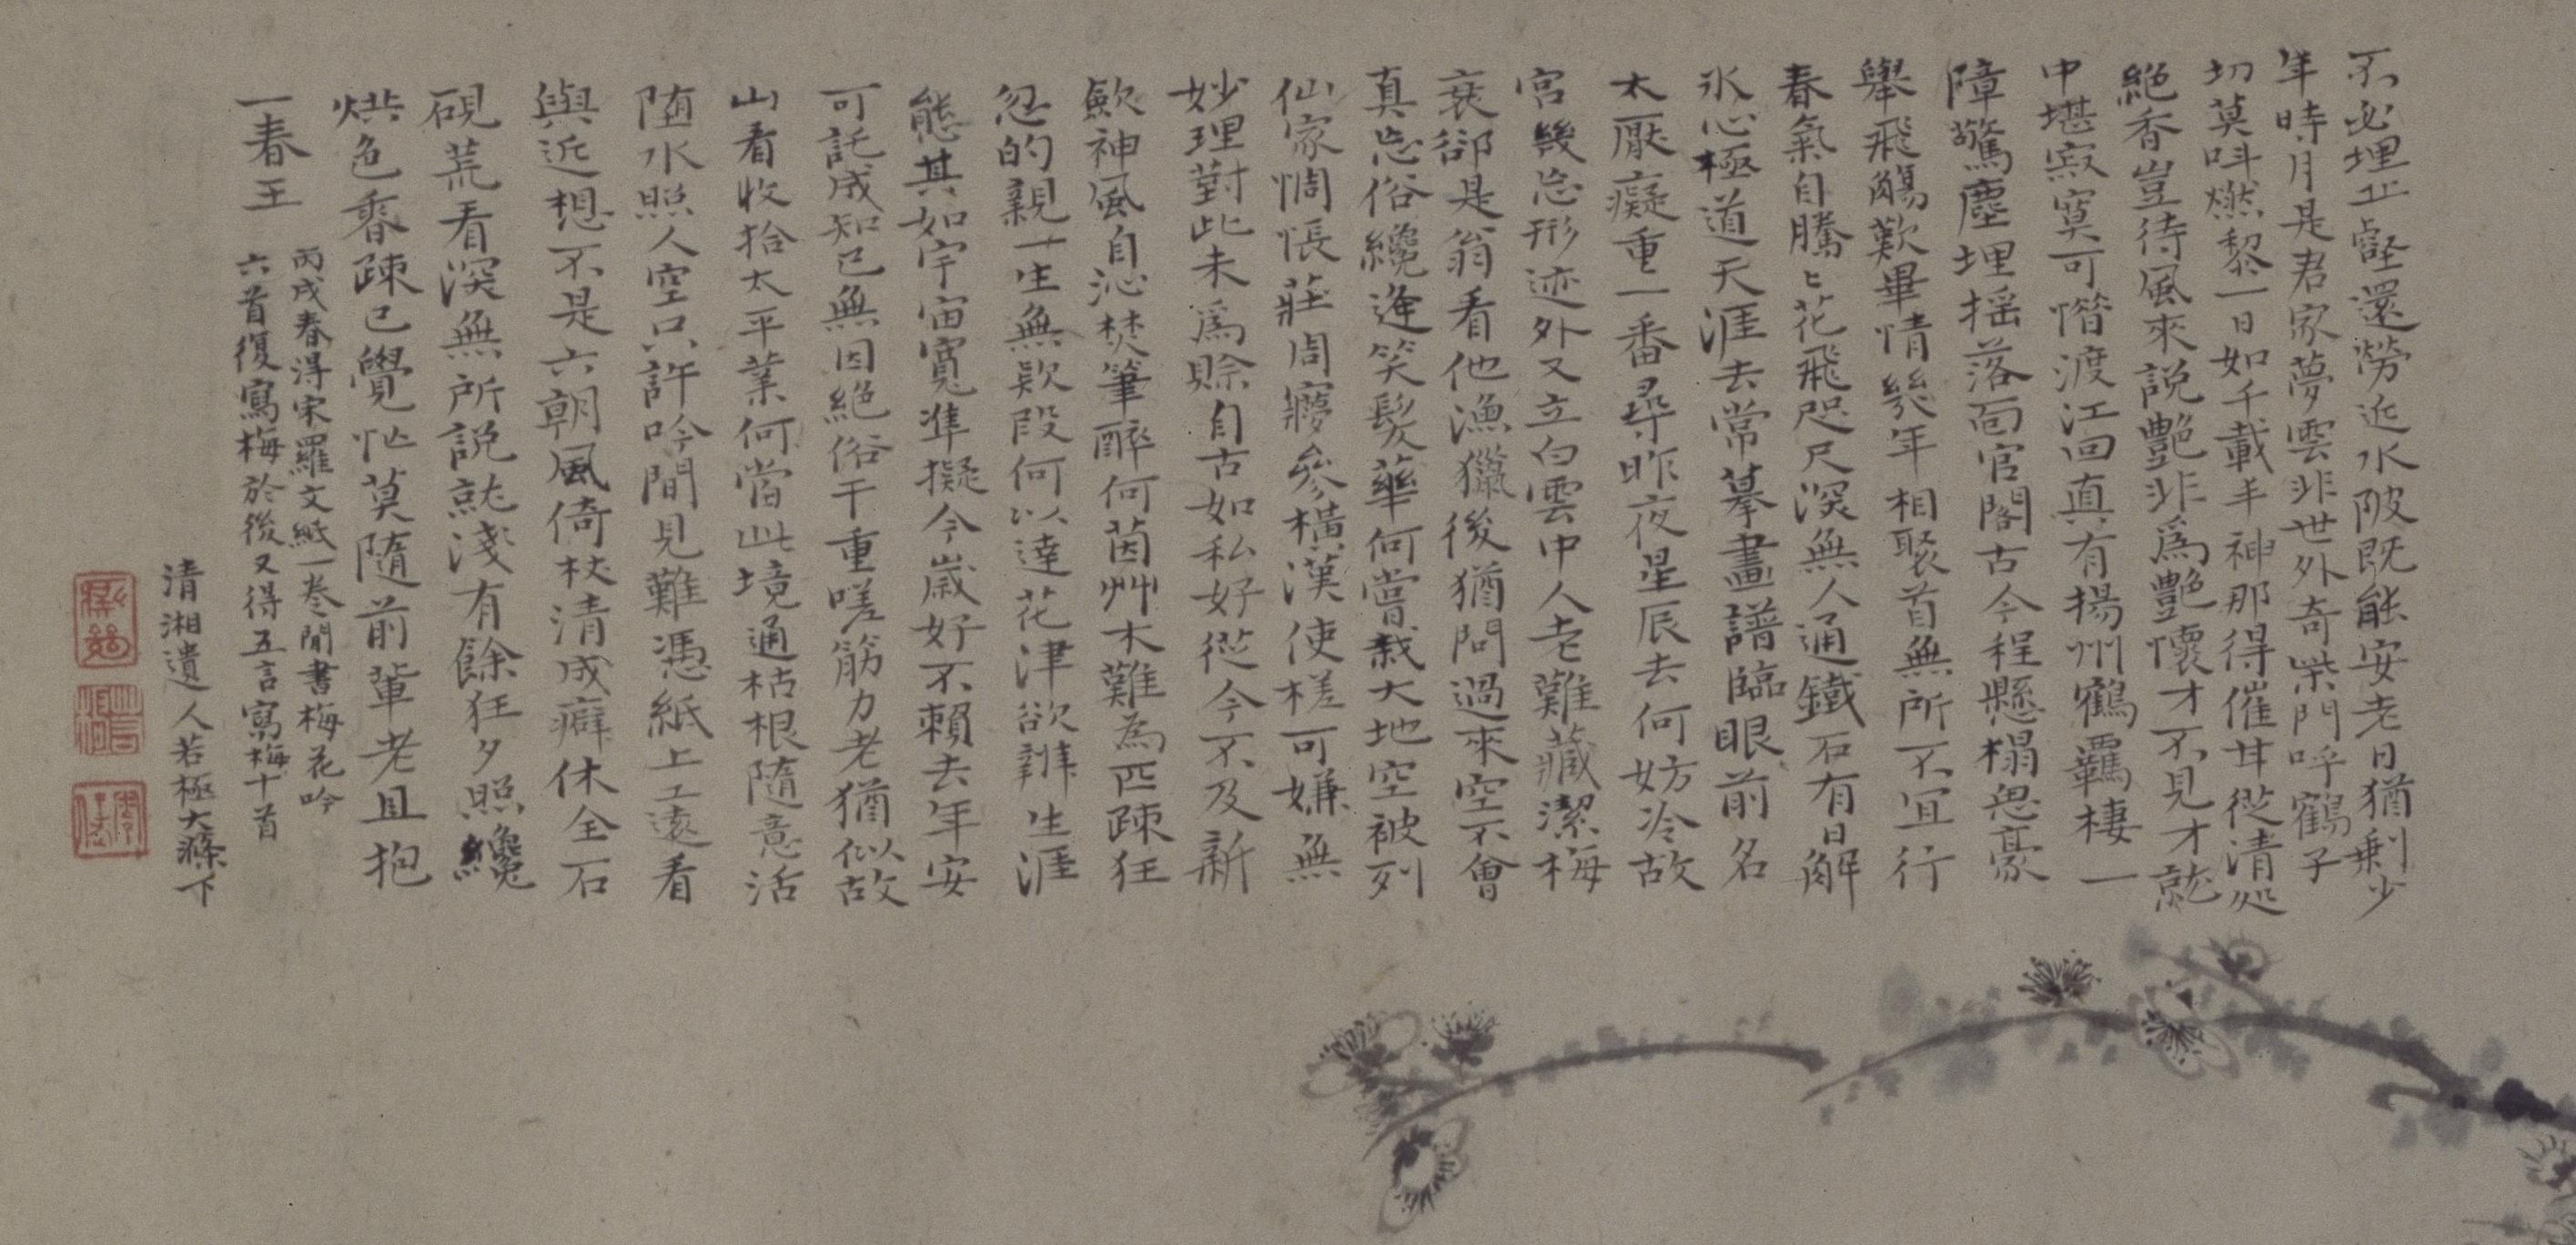 不必埋丘壑還勞近水陂既能安老日猶剩少
年時月是君家夢雲非世外奇柴門呼鶴子
切莫呌燃黎一日如千載羊神那得催甘從清処
絕香豈待風來說艷非爲艷懷才不見才就
中堪寂寞可惜渡江回真有揚州鶴羈棲一
障驚塵埋摇落面官閣古今程懸榻忽豪
舉飛觴歎畢情幾年相聚首無所不宜行
春氣自騰〻花飛咫尺深無人通鐵石有日解
冰心極道天涯去常摹畫譜臨眼前名
太厭癡重一番尋昨夜星辰去何妨冷故
宮幾忘形迹外又立白雲中人老難藏潔梅
衰卻是翁看他漁獵後猶問過來空不會
真忘俗纔逢笑髮華何嘗栽大地空被列
仙家惆悵莊周寱參橫漢使槎可嫌無
妙理對此未爲賒自古如私好從今不及新
歎神風自沁焚筆醉何茵艸木難為匹疎狂
忽的親一生無欵段何以達花津欲辦生涯
態其如宇宙寬準擬今歲好不賴去年安
可託成知己無因絕俗干重嗟筋力老猶似故
山看收拾太平業何當此境通枯根隨意活
随水照人空只許吟間見難憑紙上工遠看
與近想不是六朝風倚杖清成癖休全石
硯荒看深無所說就淺有餘狂夕照纔
烘色香疎已覺忙莫隨前軰老且抱
一春王
丙戌春得宋羅文紙一卷閒書梅花吟
六首復寫梅於後又得五言寫梅十首
清湘遺人若極大滌下